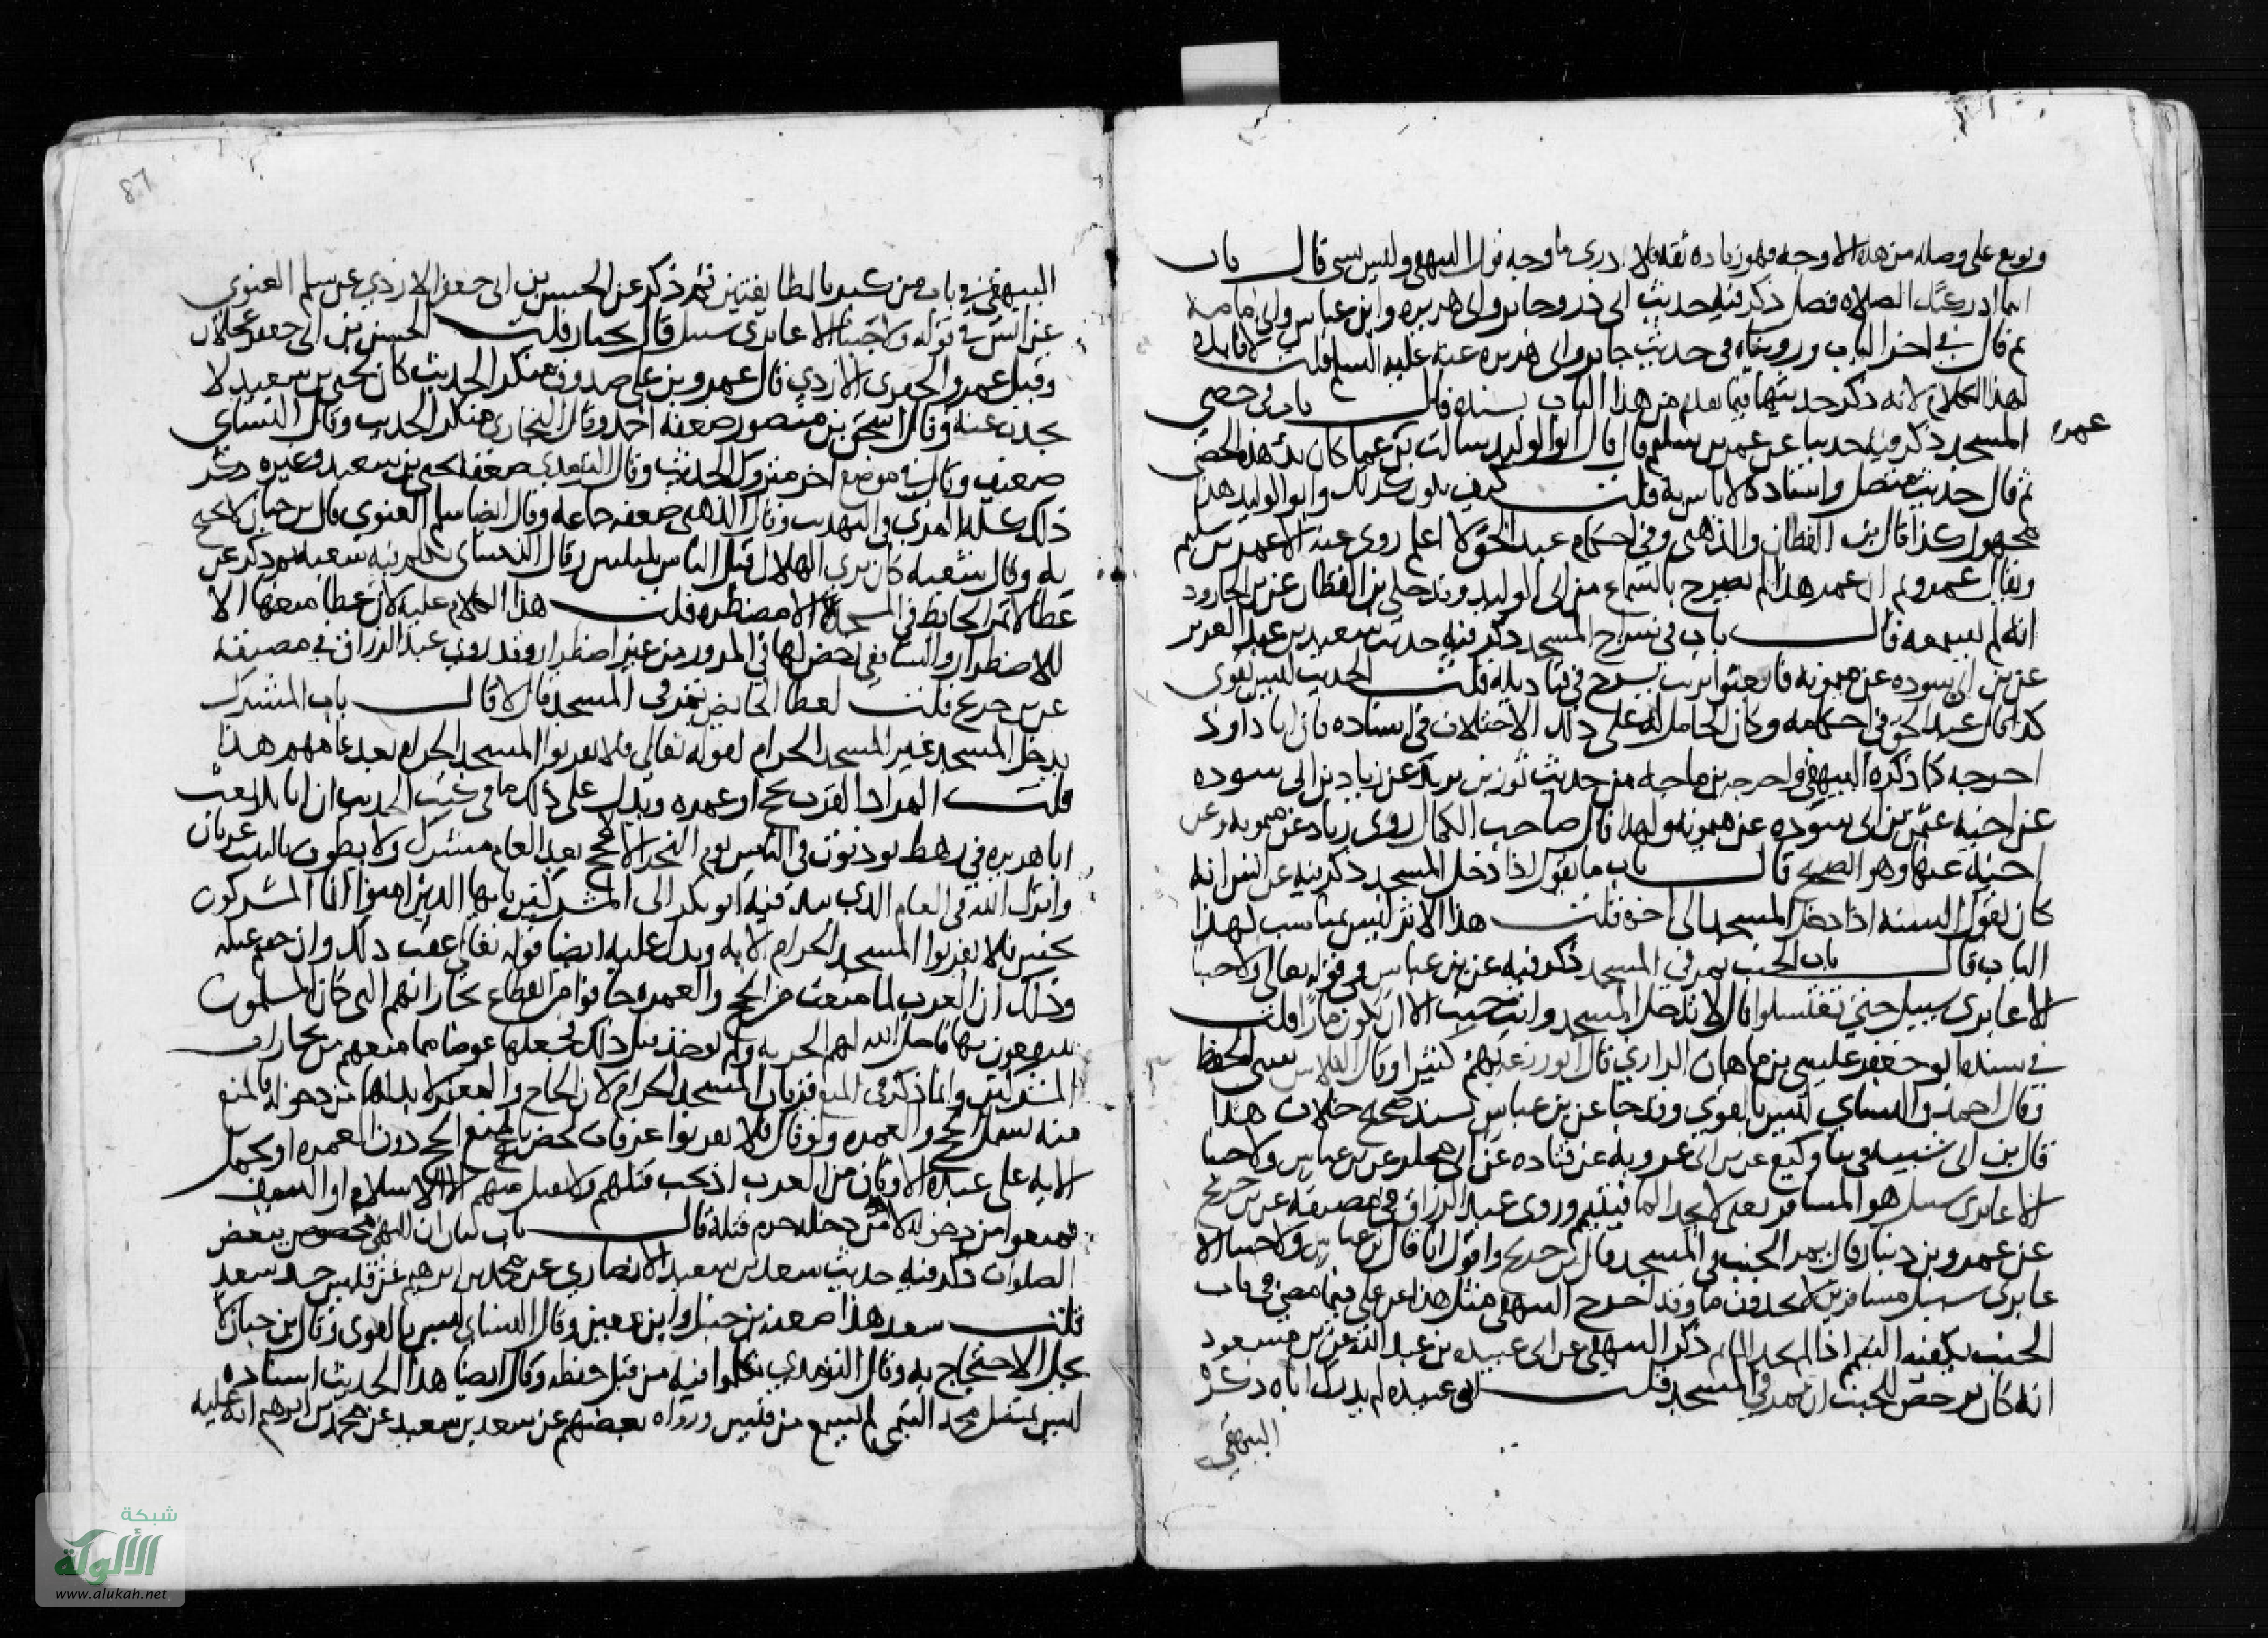 وتوبع على وصله من هذه الاوجه فهو زياده ثقه فلا ادرى ما وجه قول البيهقى وليس بشى قال باب
اينما ادركتك الصلاه فصل ذكر فيه حديث ابى ذر وجابر وابى هريره وابن عباس وابى امامه
ثم قال فى اخر الباب وروينا فى حديث جابر وابى هريره عنه عليه السلم قلت لا فايده
لهذا الكلام لانه ذكر حديثهما فيما تقدم من هذا الباب بسنده قال باب فى حصى
المسجد ذكر فيه حديثا عن عمر بن سليم قال قال ابو الوليد سالت ابن عمر ما كان بدء هذه الحصى
عمر
ثم قال حديث متصل واسناده لا باس به قلت كيف يكون كذلك وابو الوليد هذا
مجهول كذا قال ابن القطان والذهبى وفى احكام عبد الحق لا اعلم روى عنه الا عمر بن سليم
ويقال عمرو ثم ان عمر هذا لم يصرح بالسماع من ابى الوليد وقد حكى ابن القطان عن ابن الجارود
انه لم يسمعه قال باب فى سراج المسجد ذكر فيه حديث سعيد بن عبد العزيز
عن ابن ابى سوده عن ميمونه فابعثوا بزيت يسرج فى قناديله قلت الحديث ليس بقوى
كذا قال عبد الحق فى احكامه وكان الحامل له على ذلك الاختلاف فى اسناده فان ابا داود
اخرجه كما ذكره البيهقى واخرجه ابن ماجه من حديث ثور بن يزيد عن زياد بن ابى سوده
عن اخيه عثمن بن ابى سوده عن ميمونه ولهذا قال صاحب الكمال روى زياد عن ميمونه وعن
اخيه عنها وهو الصحيح قال باب ما يقول اذا دخل المسجد ذكر فيه عن انس انه
كان يقول السنه اذا دخل المسجد الى اخره قلت هذا الاثر ليس بمناسب لهذا
الباب قال باب الجنب يمر فى المسجد ذكر فيه عن ابن عباس فى قوله تعالى ولا جنبا
الا عابرى سبيل حتى تغتسلوا قال لا تدخل المسجد وانت جنب الا ان يكون مارا قلت
فى سنده ابو جعفر عيسى بن ماهان الرازى قال ابو زرعه يهم كثيرا وقال الفلاس سيى الحفظ
وقال احمد والنسائى ليس بالقوى وقد جا عن ابن عباس بسند صحيح خلاف هذا
قال ابن ابى شيبه ثنا وكيع عن ابن ابى عروبه عن قتاده عن ابى مجلز عن ابن عباس ولا جنبا
الا عابرى سبيل هو المسافر يعنى لا يجد الما فيتيمم وروى عبد الرزاق فى مصنفه عن ابن جريج
عن عمرو بن دينار قال يمر الجنب فى المسجد قال ابن جريج واقول انا قال ابن عباس ولا جنبا الا
عابرى سبيل مسافرين لا يجدون ما وقد اخرج البيهقى مثل هذا عن على فيما مضى فى باب
الجنب يكفيه التيمم اذا لم يجد الما ثم ذكر البيهقى عن ابى عبيده بن عبد الله عن ابن مسعود
انه كان يرخص للجنب ان يمر فى المسجد قلت ابو عبيده لم يدرك اباه ذكره
البيهقى
87
البيهقى فى باب من كبر بالطايفتين ثم ذكر عن الحسن بن ابى جعفر الازدى عن سلم العلوى
عن انس فى قوله ولا جنبا الا عابرى سبيل قال يجتاز قلت الحسن بن ابى جعفر عجلان
وقيل عمرو الجفرى الازدى قال عمرو بن على صدوق منكر الحديث كان يحيى بن سعيد لا
يحدث عنه وقال اسحق بن منصور ضعفه احمد وقال البخارى منكر الحديث وقال النسائى
ضعيف وقال فى موضع اخر متروك الحديث وقال الترمذى ضعفه يحيى بن سعيد وغيره ذكر
ذلك كله المزى فى التهذيب وقال الذهبى ضعفه جماعه وقال ايضا سلم العلوى قال ابن حبان لا يحتج
به وقال شعبه كان يرى الهلال قبل الناس بليلتين وقال النسائى تكلم فيه شعبه ثم ذكر عن
عطا لا تمر الحايض فى المسجد الا مضطره قلت هذا الكلام عليه لان عطا منعها الا
للاضطرار والشافعى رخص لها فى المرور من غير اضطرار وقد روى عبد الرزاق فى مصنفه
عن ابن جريج قلت لعطا الحايض تمر فى المسجد قال لا قال باب المشرك
يدخل المسجد غير المسجد الحرام لقوله تعالى فلا يقربوا المسجد الحرام بعد عامهم هذا
قلت المراد القرب بحج او عمره ويدل على ذلك ما فى الحديث ان ابا بكر بعث
ابا هريره فى رهط يوذنون فى الناس يوم النحر الا لا يحج بعد العام مشرك ولا يطوف بالبيت عريان
وانزل الله فى العام الذى نبذ فيه ابو بكر الى المشركين يايها الذين امنوا انما المشركون
نجس فلا يقربوا المسجد الحرام الايه ويدل عليه ايضا قوله تعالى عقب ذلك وان خفتم عيله
وذلك ان العرب لما منعت من الحج والعمره خافوا من انقطاع تجاراتهم التى كان المسلمون
ينتفعون بها فاحل الله لهم الجزيه ولم توخذ قبل ذلك فجعلها عوضا مما منعهم من تجارات
المشركين وانما ذكر فى المنع قربان المسجد الحرام لان الحاج والمعتمر لا بد لهما من دخوله فالمنع
منه يشمل الحج والعمره ولو قال فلا يقربوا عرفات لخص المنع الحج دون العمره او يحمل
الايه على عبده الاوثان من العرب اذ يجب قتلهم ولا يقبل منهم الا الاسلام او السيف
فمنعوا من دخوله لان من دخله حرم قتله قال باب بيان ان النهى مخصوص ببعض
الصلوات ذكر فيه حديث سعد بن سعيد الانصارى عن محمد بن ابرهيم عن قيس جد سعد
قلت سعد هذا ضعفه ابن حنبل وابن معين وقال النسائى ليس بالقوى وقال ابن حبان لا
يحل الاحتجاج به وقال الترمذى تكلموا فيه من قبل حفظه وقال ايضا هذا الحديث اسناده
ليس بمتصل محمد التيمى لم يسمع من قيس ورواه بعضهم عن سعد بن سعيد عن محمد بن ابرهيم انه عليه
شبكة
الألوكة
www.alukah.net